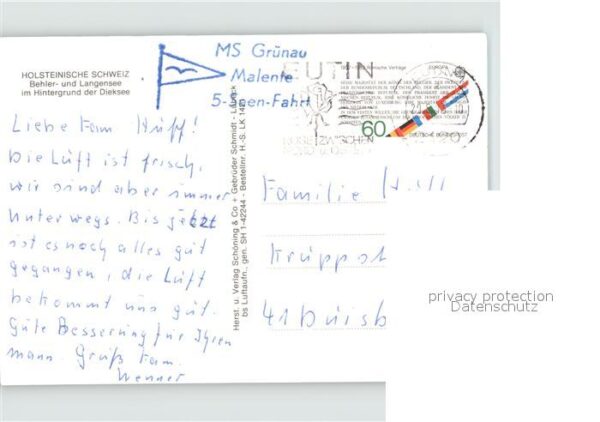 HOLSTEINISCHE SCHWEIZ
Behler- und Langensee
im Hintergrund der Dieksee
MS Grünau
Malente
5-Seen-Fahrt
EUTIN
1957-1982 Römische Verträge
EUROPA
60
DEUTSCHE BUNDESPOST
Liebe Fam Hupf!
Die Luft ist frisch,
wir sind aber immer
Unterwegs. Bis jetzt
ist es noch alles gut
gegangen, die Luft
bekommt uns gut.
Gute Besserung für Ihren
mann Gruß Fam.
Wenner
Herst. u. Verlag Schöning & Co + Gebrüder Schmidt - Lübeck
bs Luftaufn., gen. SH 1-42244 - Bestellnr. H.-S. LK 1421
Familie
Kruppst
41 Duisb
privacy protection
Datenschutz